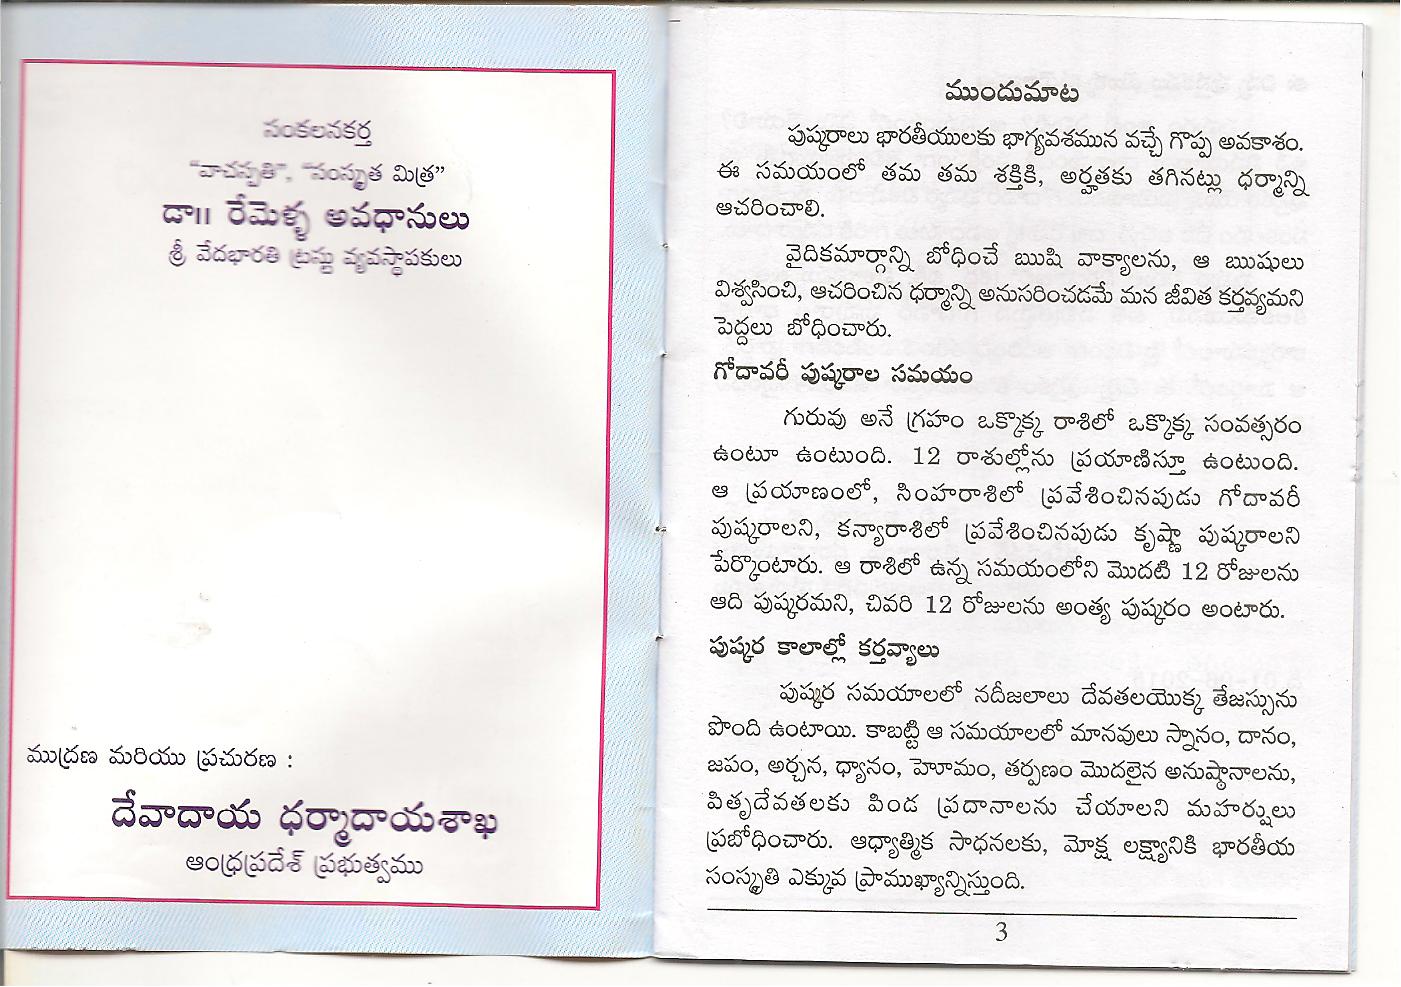 సంకలనకర్త
“వాచస్పతి”, “సంస్కృత మిత్ర”
డా॥ రేమెళ్ళ అవధానులు
శ్రీ వేదభారతి ట్రస్టు వ్యవస్థాపకులు
ముద్రణ మరియు ప్రచురణ :
దేవాదాయ ధర్మాదాయశాఖ
ఆంధ్రప్రదేశ్ ప్రభుత్వము
ముందుమాట
పుష్కరాలు భారతీయులకు భాగ్యవశమున వచ్చే గొప్ప అవకాశం.
ఈ సమయంలో తమ తమ శక్తికి, అర్హతకు తగినట్లు ధర్మాన్ని
ఆచరించాలి.
వైదికమార్గాన్ని బోధించే ఋషి వాక్యాలను, ఆ ఋషులు
విశ్వసించి, ఆచరించిన ధర్మాన్ని అనుసరించడమే మన జీవిత కర్తవ్యమని
పెద్దలు బోధించారు.
గోదావరీ పుష్కరాల సమయం
గురువు అనే గ్రహం ఒక్కొక్క రాశిలో ఒక్కొక్క సంవత్సరం
ఉంటూ ఉంటుంది. 12 రాశుల్లోను ప్రయాణిస్తూ ఉంటుంది.
ఆ ప్రయాణంలో, సింహరాశిలో ప్రవేశించినపుడు గోదావరీ
పుష్కరాలని, కన్యారాశిలో ప్రవేశించినపుడు కృష్ణా పుష్కరాలని
పేర్కొంటారు. ఆ రాశిలో ఉన్న సమయంలోని మొదటి 12 రోజులను
ఆది పుష్కరమని, చివరి 12 రోజులను అంత్య పుష్కరం అంటారు.
పుష్కర కాలాల్లో కర్తవ్యాలు
పుష్కర సమయాలలో నదీజలాలు దేవతలయొక్క తేజస్సును
పొంది ఉంటాయి. కాబట్టి ఆ సమయాలలో మానవులు స్నానం, దానం,
జపం, అర్చన, ధ్యానం, హెూమం, తర్పణం మొదలైన అనుష్ఠానాలను,
పితృదేవతలకు పిండ ప్రదానాలను చేయాలని మహర్షులు
ప్రబోధించారు. ఆధ్యాత్మిక సాధనలకు, మోక్ష లక్ష్యానికి భారతీయ
సంస్కృతి ఎక్కువ ప్రాముఖ్యాన్నిస్తుంది.
3